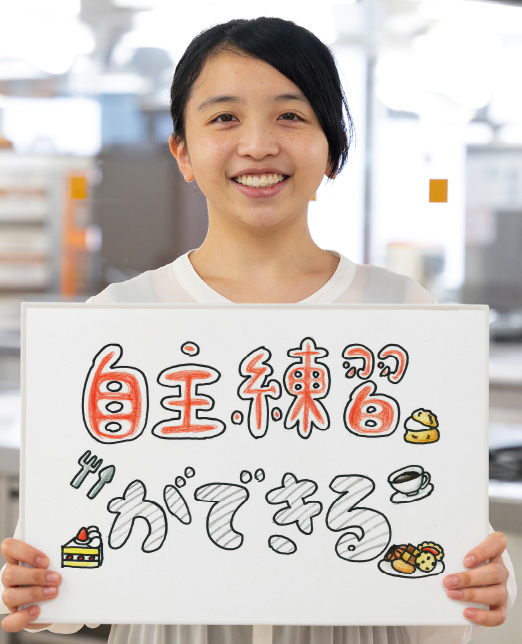 自主練習
ができる